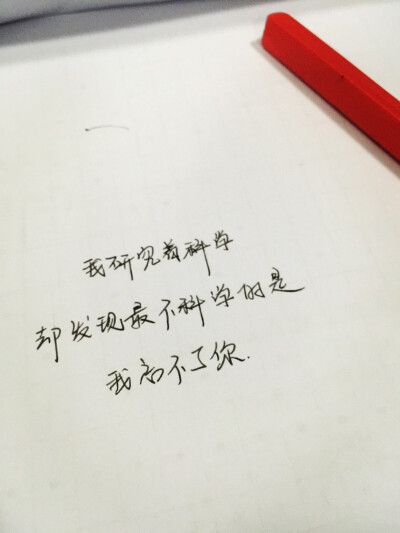 我研究着科学
却发现最不科学的是
我离不了你.